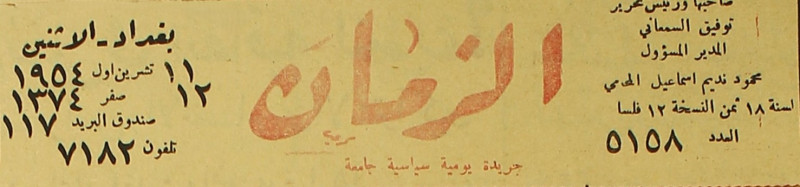 صاحبها ورئيس تحرير
توفيق السمعاني
المدير المسؤول
محمود نديم اسماعيل المحامي
لسنة ١٨ ثمن النسخة ١٢ فلسا
العدد ٥١٥٨
الزمان
جريدة يومية سياسية جامعة
بغداد - الاثنين
١١ تشرين اول ١٩٥٤
١٢ صفر ١٣٧٤
صندوق البريد ١١٧
تلفون ٧١٨٢